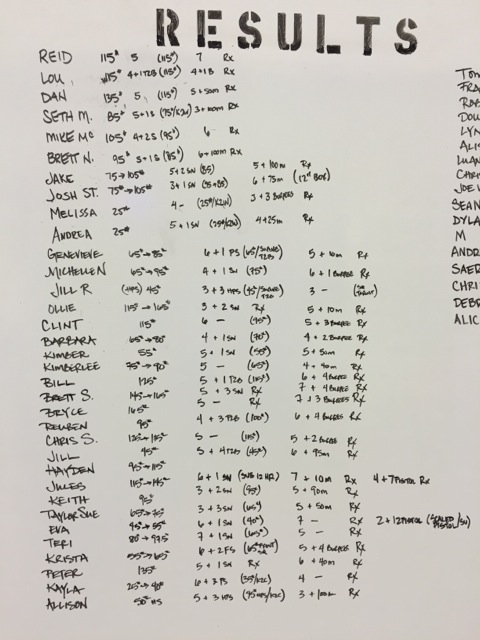 RESULTS
REID 115# 5 (115#) 7 Rx
LOU 115# 4+1TB (115#) 4+1B Rx
DAN 135# 5 (115#) 5+50m Rx
SETH M. 85# 5+1S (75#/K2N) 3+100m Rx
MIKE Mc 105# 4+2S (95#) 6 Rx
BRETT N. 95# 5+1S (85#) 6+100m Rx
JAKE 75→105# 5+2SN (85) 5+100m Rx
JOSH ST. 75#→105# 3+1SN 6+75m
MELISSA 25# 4- (25#/K2N) 3+3 BURPEES Rx
ANDREA 25# 5+1SN (25#/K2N) 4+25m Rx
GENEVIEVE 65#→85# 6+1PS 5+10m Rx
MICHELLE N 65#→95# 4+1SN (75#) 6+1 BURPEE Rx
JILL R (HPS) 45# 3+3 HPS 3-
OLLIE 115#→165# 3+2SN Rx 5+10m Rx
CLINT 115# 6- (95#) 5+3 BURPEE Rx
BARBARA 65#→80# 4+1SN (70#) 4+2 BURPEE Rx
KIMBER 55# 5+1SN (55#) 5+50m Rx
KIMBERLEE 75#→90# 5- (65#) 4+40m Rx
BILL 125# 5+1TB (115#) 6+4 BURPEE Rx
BRETT S. 145→165# 5+3SN Rx 7+4 BURPEE Rx
BRYCE 165# 5- Rx 7+3 BURPEES Rx
REUBEN 95# 4+3TB (100#) 6+4 BURPEES Rx
CHRIS S. 125→155# 5- (115#) 5+2 BURPEE Rx
JILL 45# 5+4TB (45#) 6+95m Rx
HAYDEN 95#→115#
JULES 115#→145# 6+1SN 7+10m Rx 4+7 PISTOL Rx
KEITH 95# 3+2SN (95#) 5+90m Rx
TAYLOR SUE 65#→75# 3+3SN (65#) 5+50m Rx
EVA 45#→55# 6+1SN (40#) 7- Rx 2+12 PISTOL
TERI 80#→97.5 7+1SN (65#) 5- Rx
KRISTA 55#→65# 6+2FS 5+4 BURPEES Rx
PETER 135# 5+1SN Rx 6+40m Rx
KAYLA 25#→40# 6+3PS (35#/K2C) 4- Rx
ALLISON 50# HS 5+3HPS 3+100m Rx
TOM
FRA
LYN
ALIS
LUAN
CHRIS
JOE
SEAN
DYLA
M
ANDR
SAER
CHRI
DEBR
ALIC